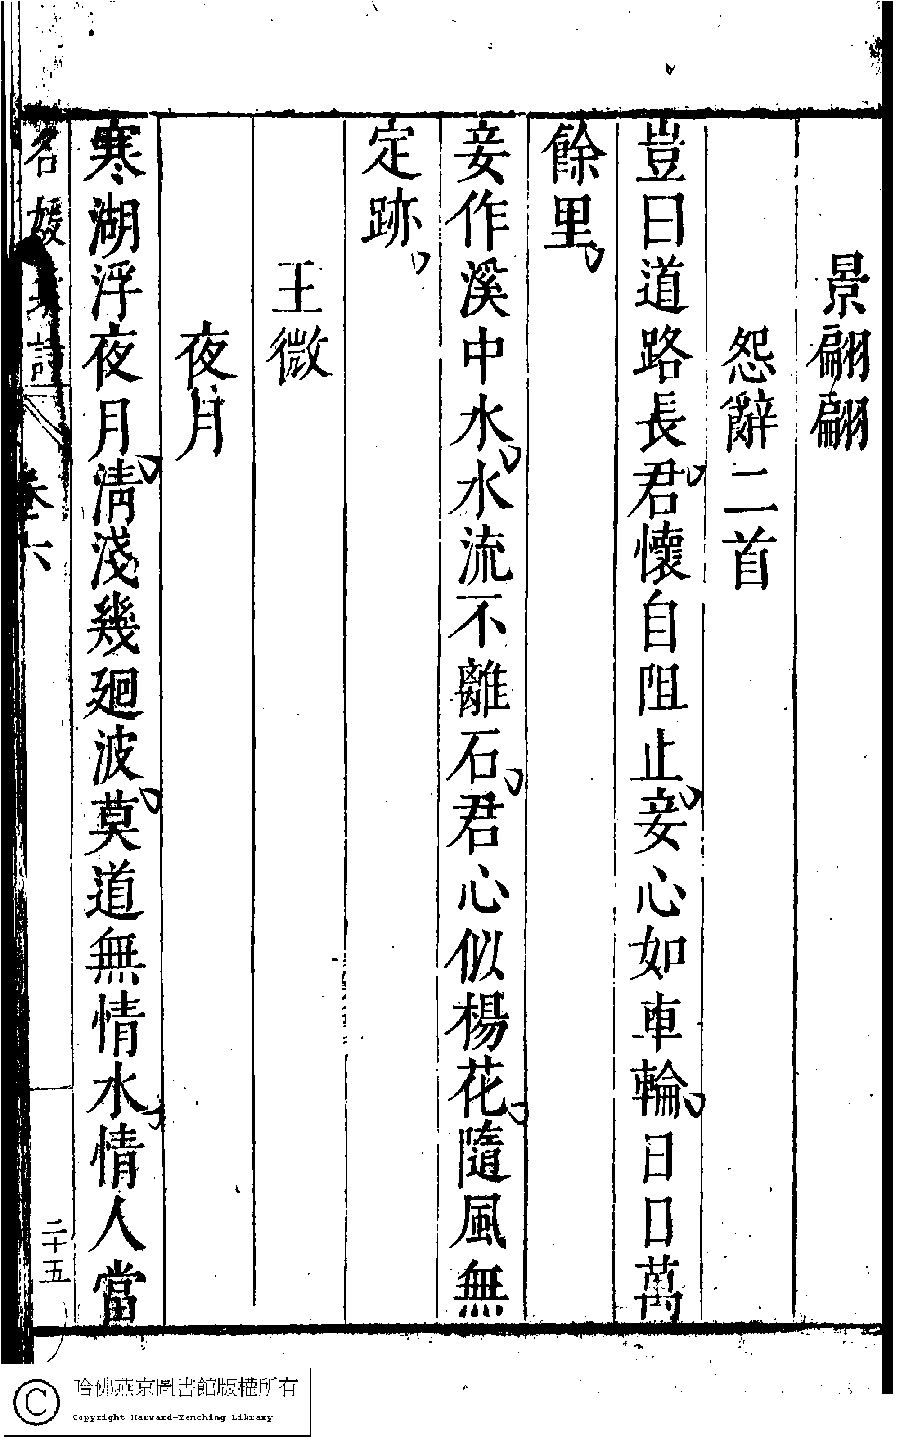 景翩翩
怨辭二首
豈曰道路長君懷自阻止妾心如車輪日日萬
餘里
妾作溪中水水流不離石君心似楊花隨風無
定跡
王微
夜月
寒湖浮夜月淸淺幾廻波莫道無情水情人當
名媛 詩 卷六 二十五
哈佛燕京圖書館版權所有
Copyright Harvard-Yenching Library